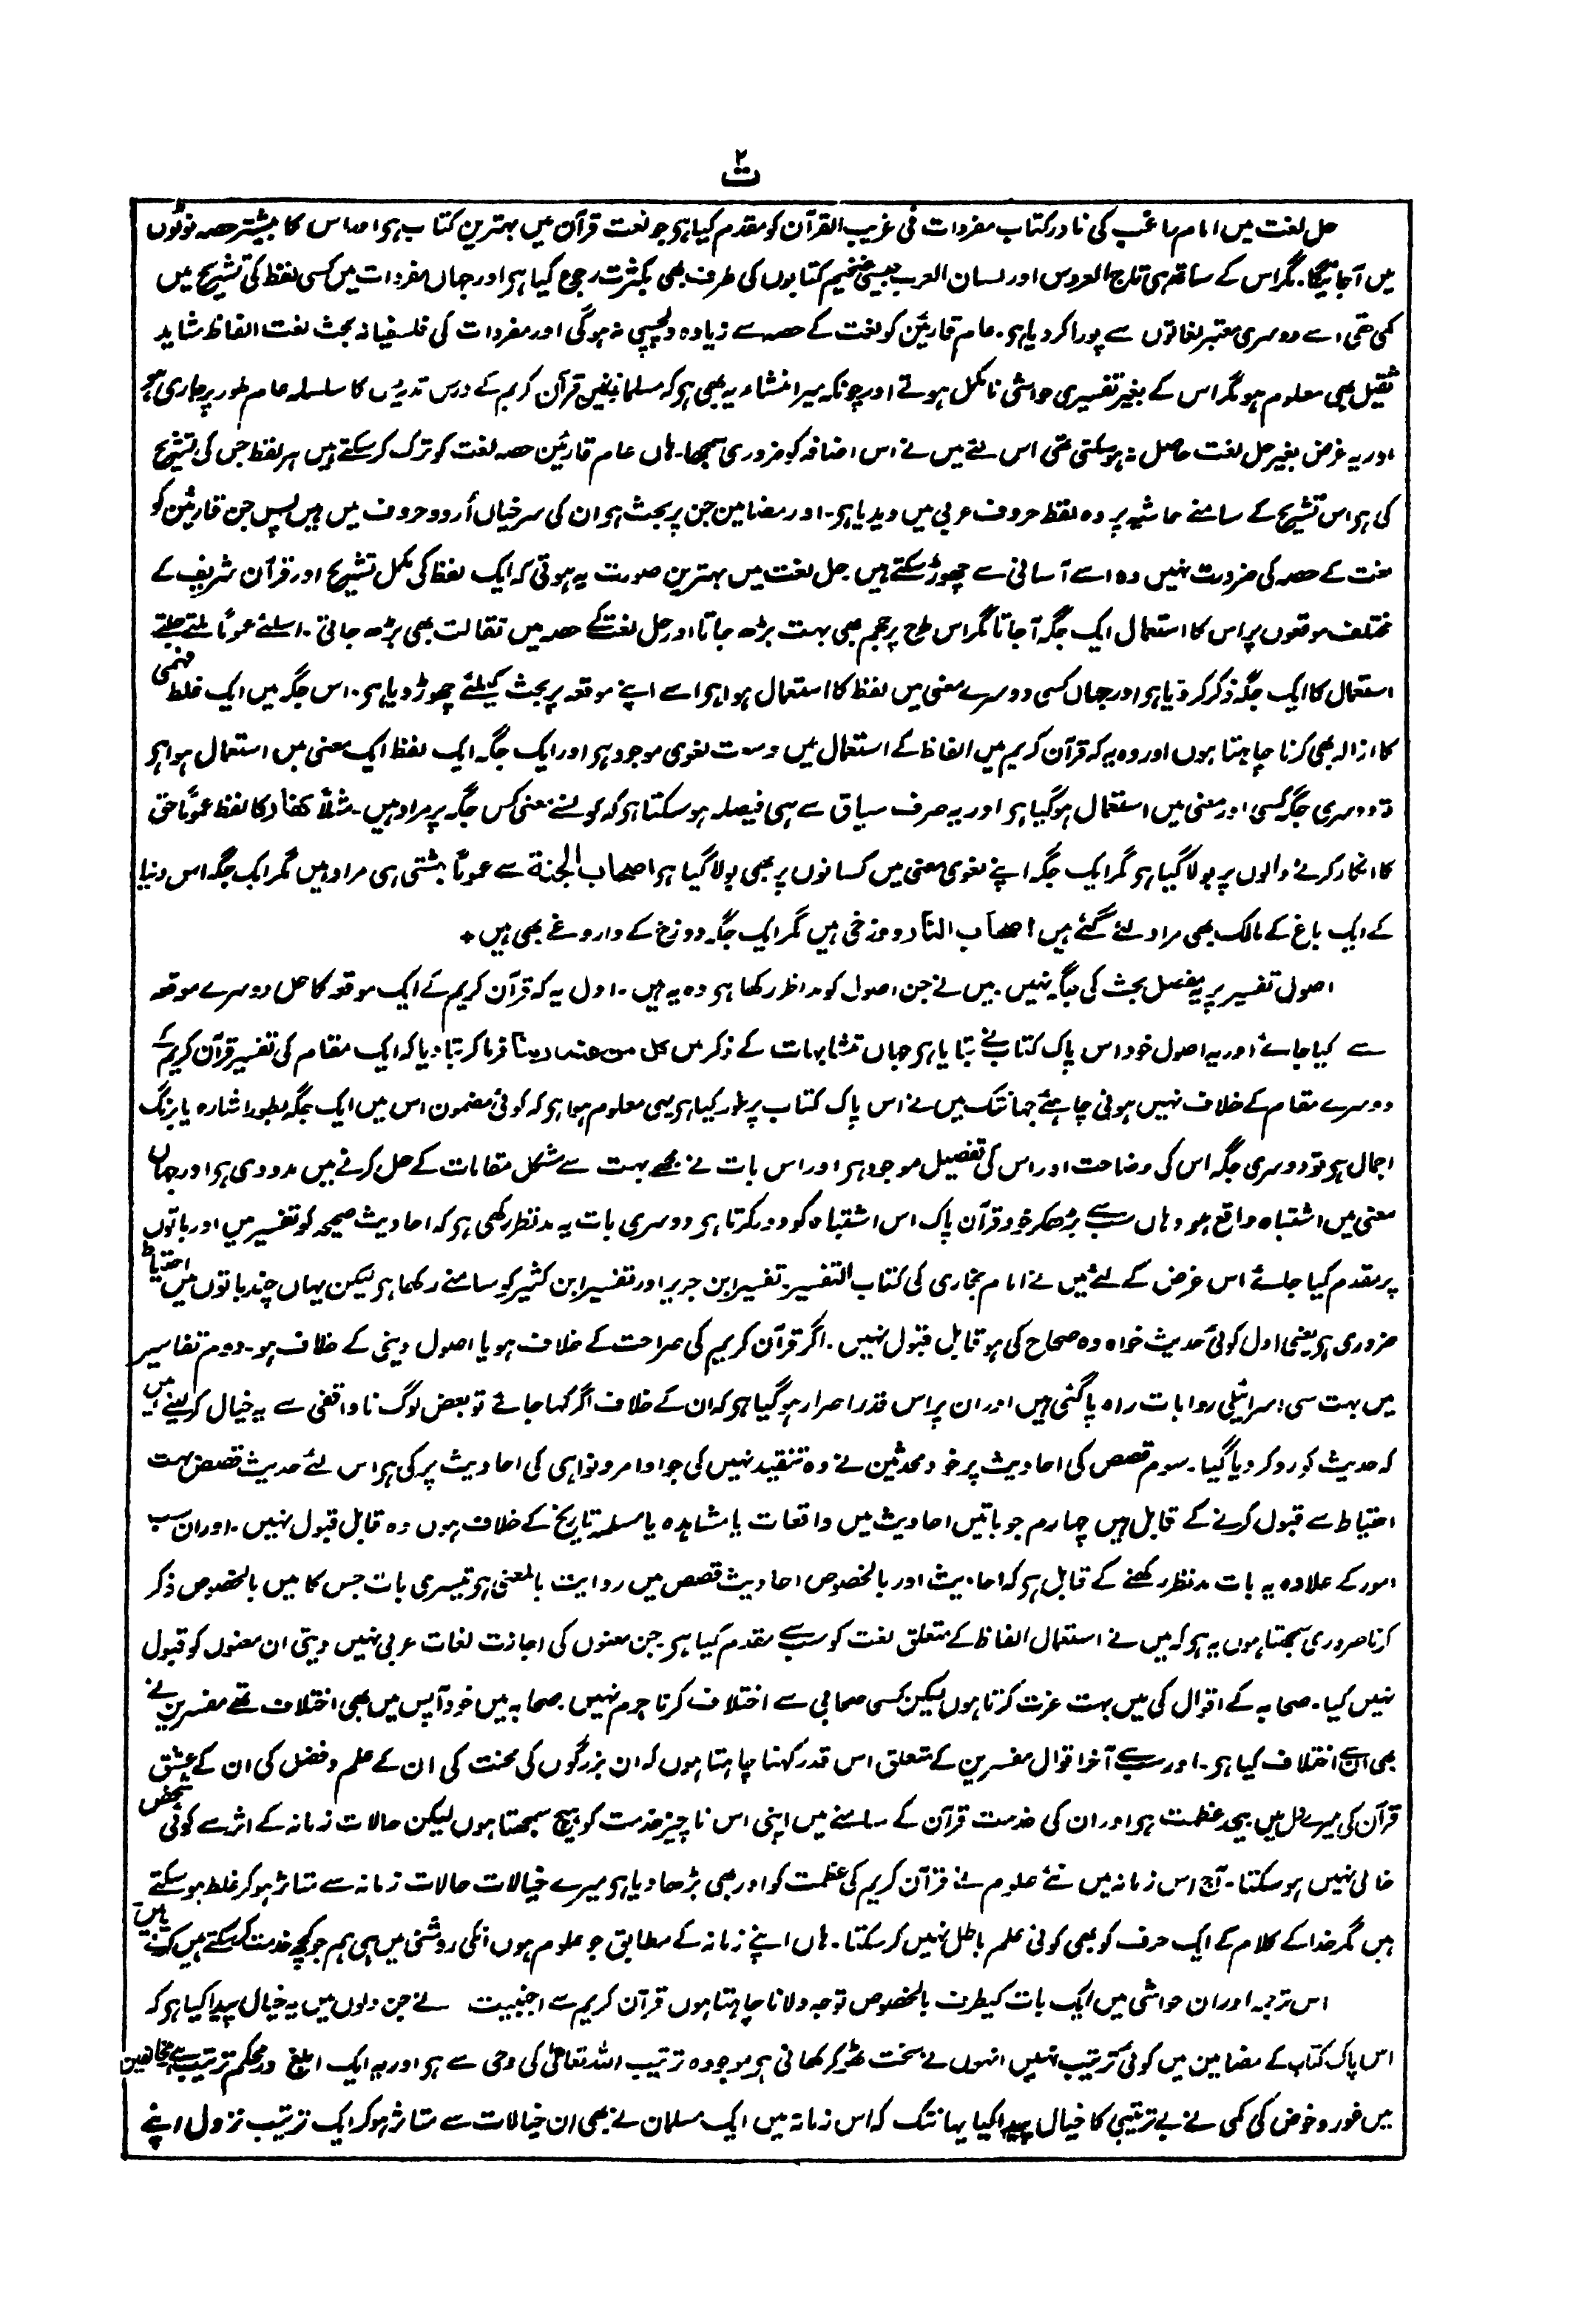 ت۲
حل لغت میں امام راغب کی نادر کتاب مفردات فی غریب القرآن کو مقدم کیا ہو جو لغت قرآن میں بہترین کتاب ہو اور اس کا بیشتر حصہ نوٹوں
میں آجائیگا۔ مگر اس کے ساتھ ہی تاج العروس اور لسان العرب جیسی ضخیم کتابوں کی طرف بھی بکثرت رجوع کیا ہو اور جہاں مفردات میں کسی لفظ کی تشریح میں
کمی تھی اسے دوسری معتبر لغاتوں سے پورا کر دیا ہو۔ عام قارئین کو لغت کے حصہ سے زیادہ دلچسپی نہ ہوگی اور مفردات کی فلسفیانہ بحث لغت الفاظ شاید
ثقیل بھی معلوم ہو مگر اس کے بغیر تفسیری حواشی نامکمل ہوتے اور چونکہ میرا منشاء یہ بھی ہو کہ مسلمانوں میں قرآن کریم کے درس تدریس کا سلسلہ عام طور پر جاری ہو
اور یہ غرض بغیر حل لغت حاصل نہ ہو سکتی تھی اس لئے میں نے اس اضافہ کو ضروری سمجھا۔ ہاں عام قارئین حصہ لغت کو ترک کر سکتے ہیں ہر لفظ جس کی تشریح
کی ہو اس تشریح کے سامنے حاشیہ پر وہ لفظ حروف عربی میں دیدیا ہو۔ اور مضامین جن پر بحث ہو ان کی سرخیاں اُردو حروف میں ہیں پس جن قارئین کو
لغت کے حصہ کی ضرورت نہیں وہ اسے آسانی سے چھوڑ سکتے ہیں۔ حل لغت میں بہترین صورت یہ ہوتی کہ ایک لفظ کی مکمل تشریح اور قرآن شریف کے
مختلف موقعوں پر اس کا استعمال ایک جگہ آجاتا مگر اس طرح پر حجم بھی بہت بڑھ جاتا اور حل لغت کے حصہ میں ثقالت بھی بڑھ جاتی۔ اسلئے عموماً ملتے جلتے
استعمال کا ایک جگہ ذکر کر دیا ہو اور جہاں کسی دوسرے معنی میں لفظ کا استعمال ہوا ہو اسے اپنے موقعہ پر بحث کیلئے چھوڑ دیا ہو۔ اس جگہ میں ایک غلط فہمی
کا ازالہ بھی کرنا چاہتا ہوں اور وہ یہ کہ قرآن کریم میں الفاظ کے استعمال میں وسعت لغوی موجود ہو اور ایک جگہ ایک لفظ ایک معنی میں استعمال ہوا ہو
تو دوسری جگہ کسی اور معنی میں استعمال ہو گیا ہو اور یہ صرف سیاق سے ہی فیصلہ ہو سکتا ہو کہ کونسے معنی کس جگہ پر مراد ہیں۔ مثلاً کفار کا لفظ عموماً حق
کا انکار کرنے والوں پر بولا گیا ہو مگر ایک جگہ اپنے لغوی معنی میں کسانوں پر بھی بولا گیا ہو اصحاب الجنة سے عموماً بہشتی ہی مراد ہیں مگر ایک جگہ اس دنیا
کے ایک باغ کے مالک بھی مراد لئے گئے ہیں اصحاب النار دوزخی ہیں مگر ایک جگہ دوزخ کے داروغے بھی ہیں ٭
اصول تفسیر پر یہ مفصل بحث کی جگہ نہیں۔ میں نے جن اصول کو مد نظر رکھا ہو وہ یہ ہیں۔ اول یہ کہ قرآن کریم کے ایک موقعہ کا حل دوسرے موقعہ
سے کیا جائے اور یہ اصول خود اس پاک کتاب نے بتایا ہو جہاں متشابہات کے ذکر میں کل من عند ربنا فرما کر بتا دیا کہ ایک مقام کی تفسیر قرآن کریم کے
دوسرے مقام کے خلاف نہیں ہونی چاہئے جہانتک میں نے اس پاک کتاب پر غور کیا ہو یہی معلوم ہوا ہو کہ کوئی مضمون اس میں ایک جگہ بطور اشارہ یا برنگ
اجمال ہو تو دوسری جگہ اس کی وضاحت اور اس کی تفصیل موجود ہو اور اس بات نے مجھے بہت سے مشکل مقامات کے حل کرنے میں مدد دی ہو اور جہاں
معنی میں اشتباہ واقع ہو وہاں سب سے بڑھکر خود قرآن پاک اس اشتباہ کو دور کرتا ہو دوسری بات یہ مدنظر رکھی ہو کہ احادیث صحیحہ کو تفسیر میں اور باتوں
پر مقدم کیا جائے اس غرض کے لئے میں نے امام بخاری کی کتاب التفسیر۔ تفسیر ابن جریر اور تفسیر ابن کثیر کو سامنے رکھا ہو لیکن یہاں چند باتوں میں احتیاط
ضروری ہو یعنی اول کوئی حدیث خواہ وہ صحاح کی ہو قابل قبول نہیں۔ اگر قرآن کریم کی صراحت کے خلاف ہو یا اصول دینی کے خلاف ہو۔ دوم تفاسیر
میں بہت سی اسرائیلی روایات راہ پا گئی ہیں اور ان پر اس قدر اصرار ہو گیا ہو کہ ان کے خلاف اگر کہا جائے تو بعض لوگ ناواقفی سے یہ خیال کر لیتے ہیں
کہ حدیث کو رد کر دیا گیا۔ سوم قصص کی احادیث پر خود محدثین نے وہ تنقید نہیں کی جو اوامر و نواہی کی احادیث پر کی ہو اس لئے حدیث قصص بہت
احتیاط سے قبول کرنے کے قابل ہیں چہارم جو باتیں احادیث میں واقعات یا مشاہدہ یا مسلمہ تاریخ کے خلاف ہوں وہ قابل قبول نہیں۔ اور ان سب
امور کے علاوہ یہ بات مدنظر رکھنے کے قابل ہو کہ احادیث اور بالخصوص احادیث قصص میں روایت بالمعنی ہو تیسری بات جس کا میں بالخصوص ذکر
کرنا ضروری سمجھتا ہوں یہ ہو کہ میں نے استعمال الفاظ کے متعلق لغت کو سب سے مقدم کیا ہو۔ جن معنوں کی اجازت لغات عربی نہیں دیتی ان معنوں کو قبول
نہیں کیا۔ صحابہ کے اقوال کی میں بہت عزت کرتا ہوں لیکن کسی صحابی سے اختلاف کرنا جرم نہیں۔ صحابہ میں خود آپس میں بھی اختلاف تھے مفسرین نے
بھی ان سے اختلاف کیا ہو۔ اور سب سے آخر اقوال مفسرین کے متعلق اس قدر کہنا چاہتا ہوں کہ ان بزرگوں کی محنت کی ان کے علم و فضل کی ان کے عشق
قرآن کی میرے دل میں بیحد عظمت ہو اور ان کی خدمت قرآن کے سامنے میں اپنی اس ناچیز خدمت کو ہیچ سمجھتا ہوں لیکن حالات زمانہ کے اثر سے کوئی شخص
خالی نہیں ہو سکتا۔ آج اس زمانہ میں نئے علوم نے قرآن کریم کی عظمت کو اور بھی بڑھا دیا ہو میرے خیالات حالات زمانہ سے متاثر ہو کر غلط ہو سکتے
ہیں مگر خدا کے کلام کے ایک حرف کو بھی کوئی علم باطل نہیں کر سکتا۔ ہاں اپنے زمانہ کے مطابق جو علوم ہوں انکی روشنی میں ہی ہم جو کچھ خدمت کر سکتے ہیں
اس ترجمہ اور ان حواشی میں ایک بات کیطرف بالخصوص توجہ دلانا چاہتا ہوں قرآن کریم سے اجنبیت نے جن دلوں میں یہ خیال پیدا کیا ہو کہ
اس پاک کتاب کے مضامین میں کوئی ترتیب نہیں انہوں نے سخت ٹھوکر کھائی ہو موجودہ ترتیب اللہ تعالیٰ کی وحی سے ہو اور یہ ایک ابلغ و محکم ترتیب ہے مضامین
میں غور و خوض کی کمی نے بے ترتیبی کا خیال پیدا کیا یہانتک کہ اس زمانہ میں ایک مسلمان نے بھی ان خیالات سے متاثر ہو کر ایک ترتیب نزول اپنے